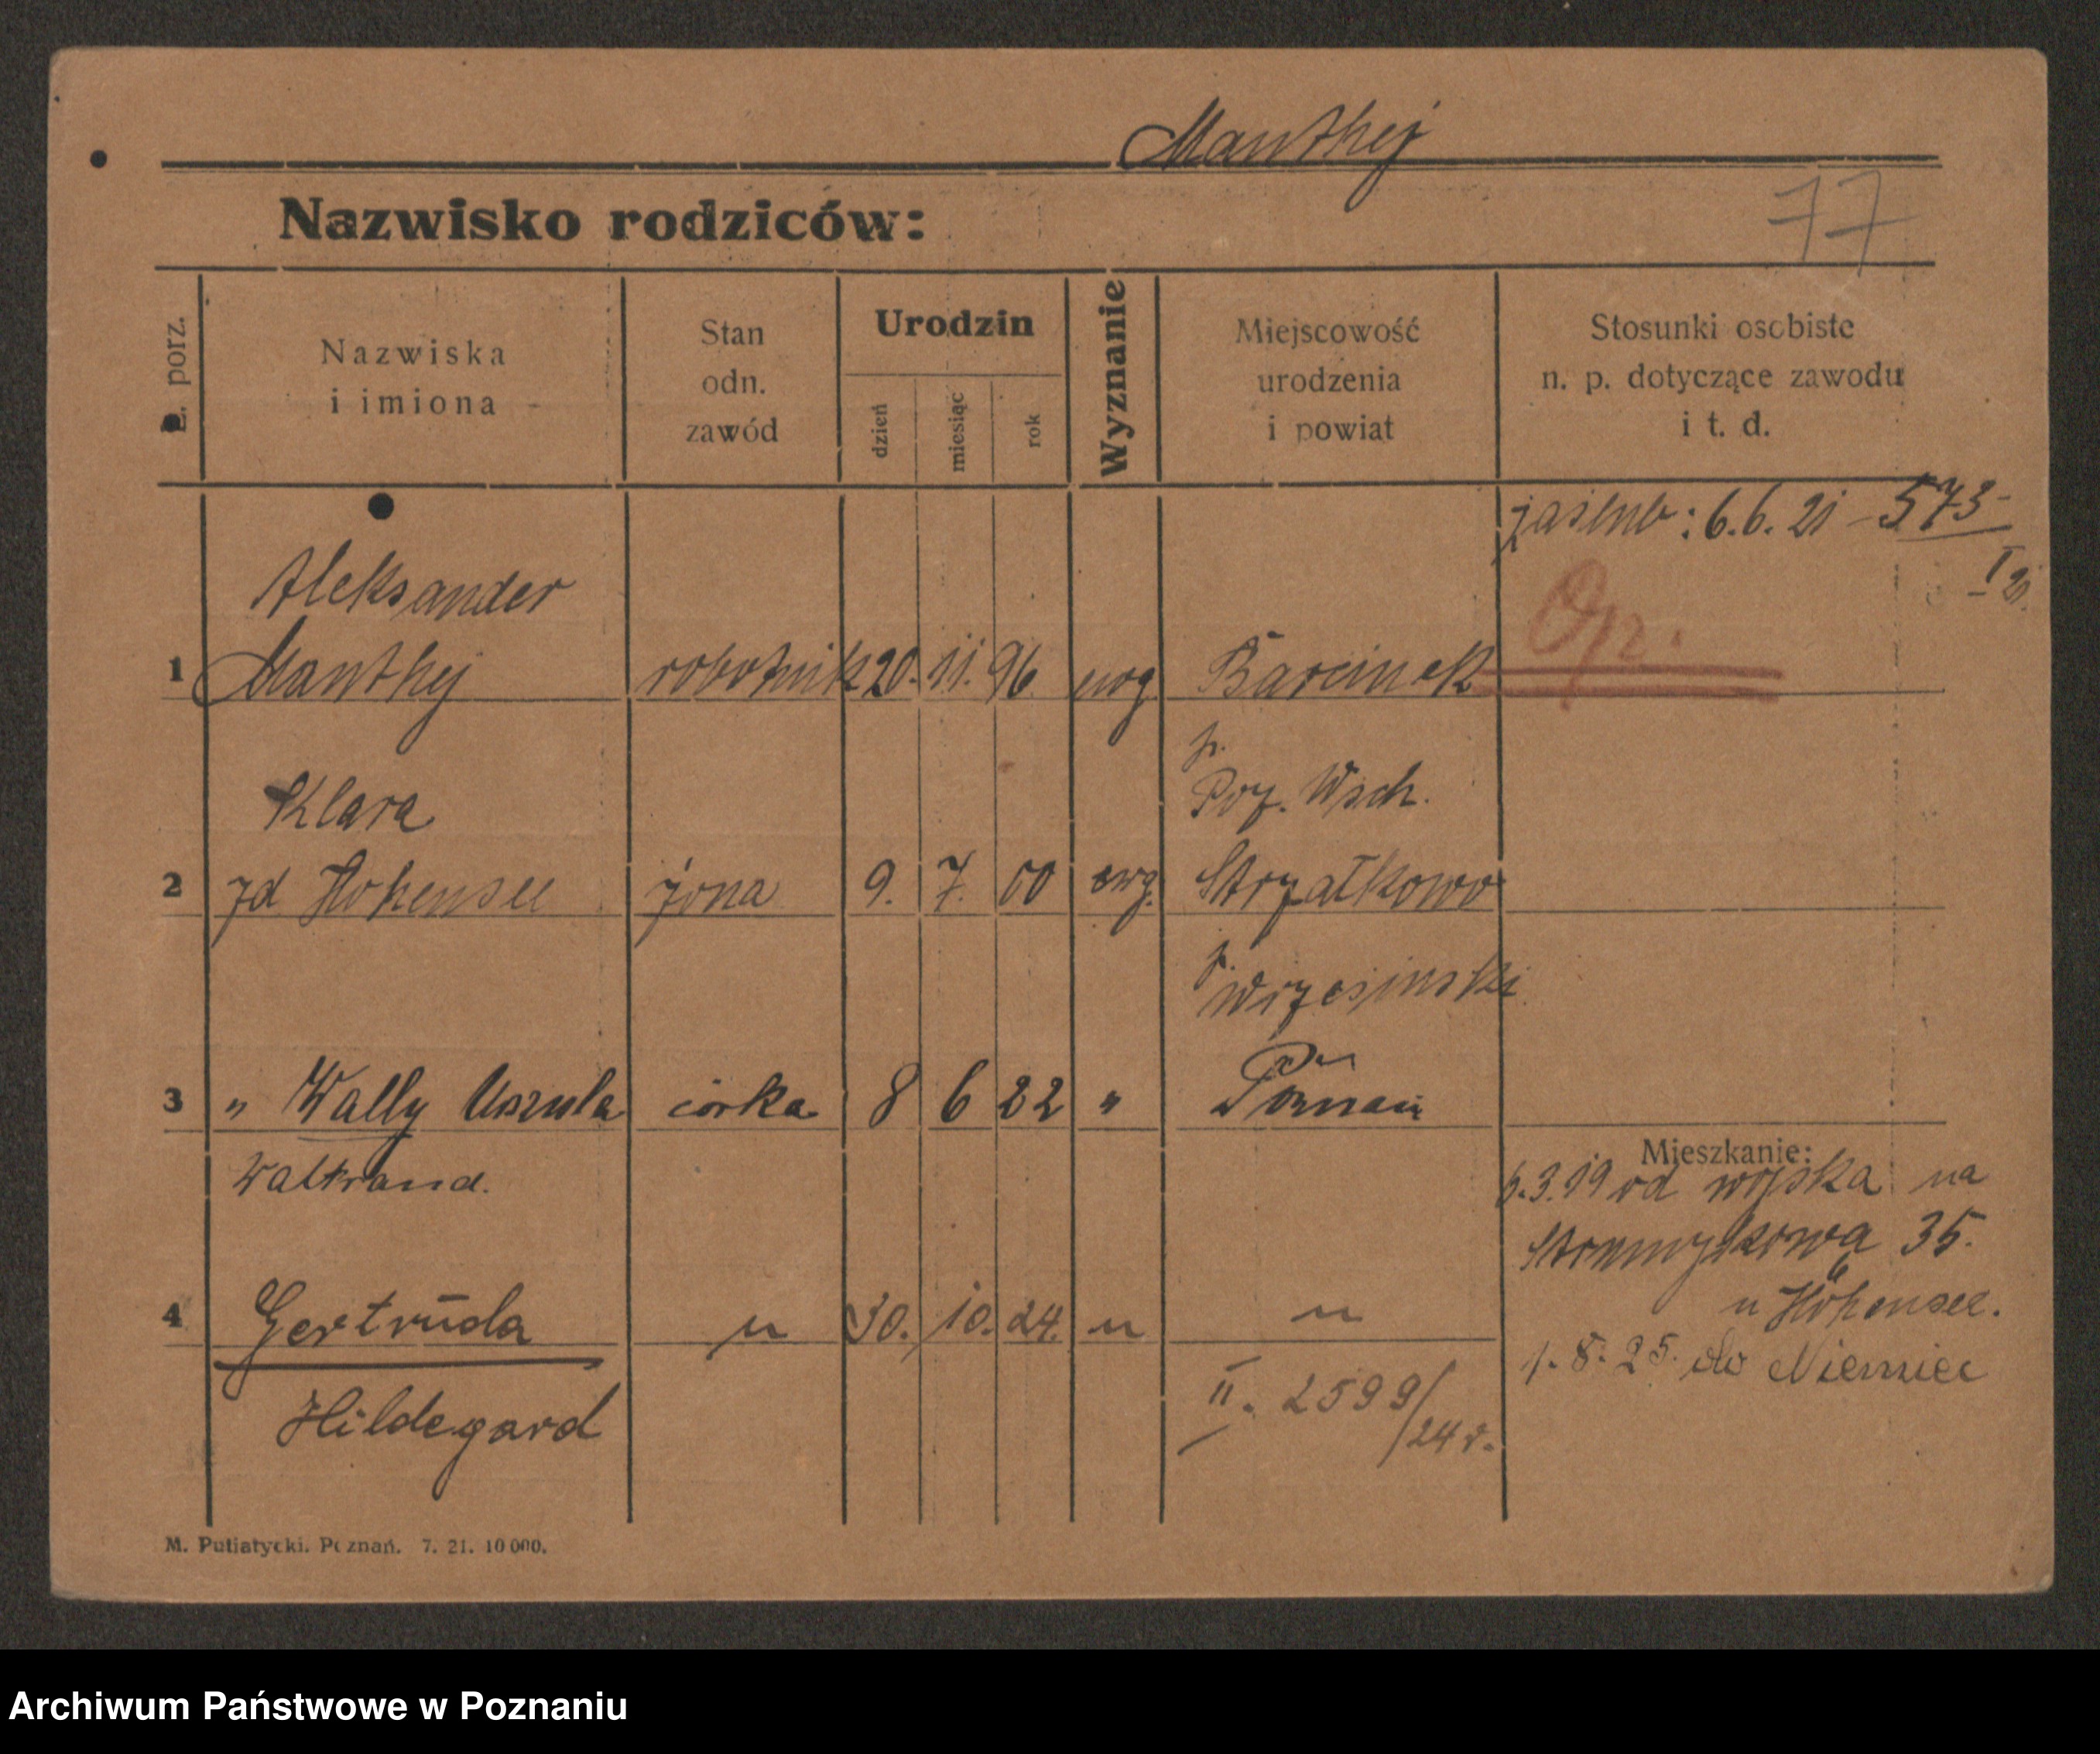 Manthej
77
Nazwisko rodziców:
L. porz.
Nazwiska
i imiona
Stan
odn.
zawód
Urodzin
dzień
miesiąc
rok
Wyznanie
Miejscowość
urodzenia
i powiat
Stosunki osobiste
n. p. dotyczące zawodu
i t. d.
: 6.6.21 - 573
Aleksander
Op.
1 Manthej robotnik 20. 11. 96. ewg. Barcinek
p.
Klara Poz. Wsch.
2 zd Hohensee żona 9. 7. 00 ewg. Strzałkowo
p.
Wrzesinski
3 " Wally Urszula córka 8 6 22 " Poznań
Waltraud.
Mieszkanie:
6.3.19 od wojska na
35.
u Hohensee.
4 Gertruda " 30. 10. 24. " "
1.8.25. do Niemiec
Hildegard
II. 2599/24 r.
M. Putiatycki. Poznań. 7. 21. 10 000.
Archiwum Państwowe w Poznaniu